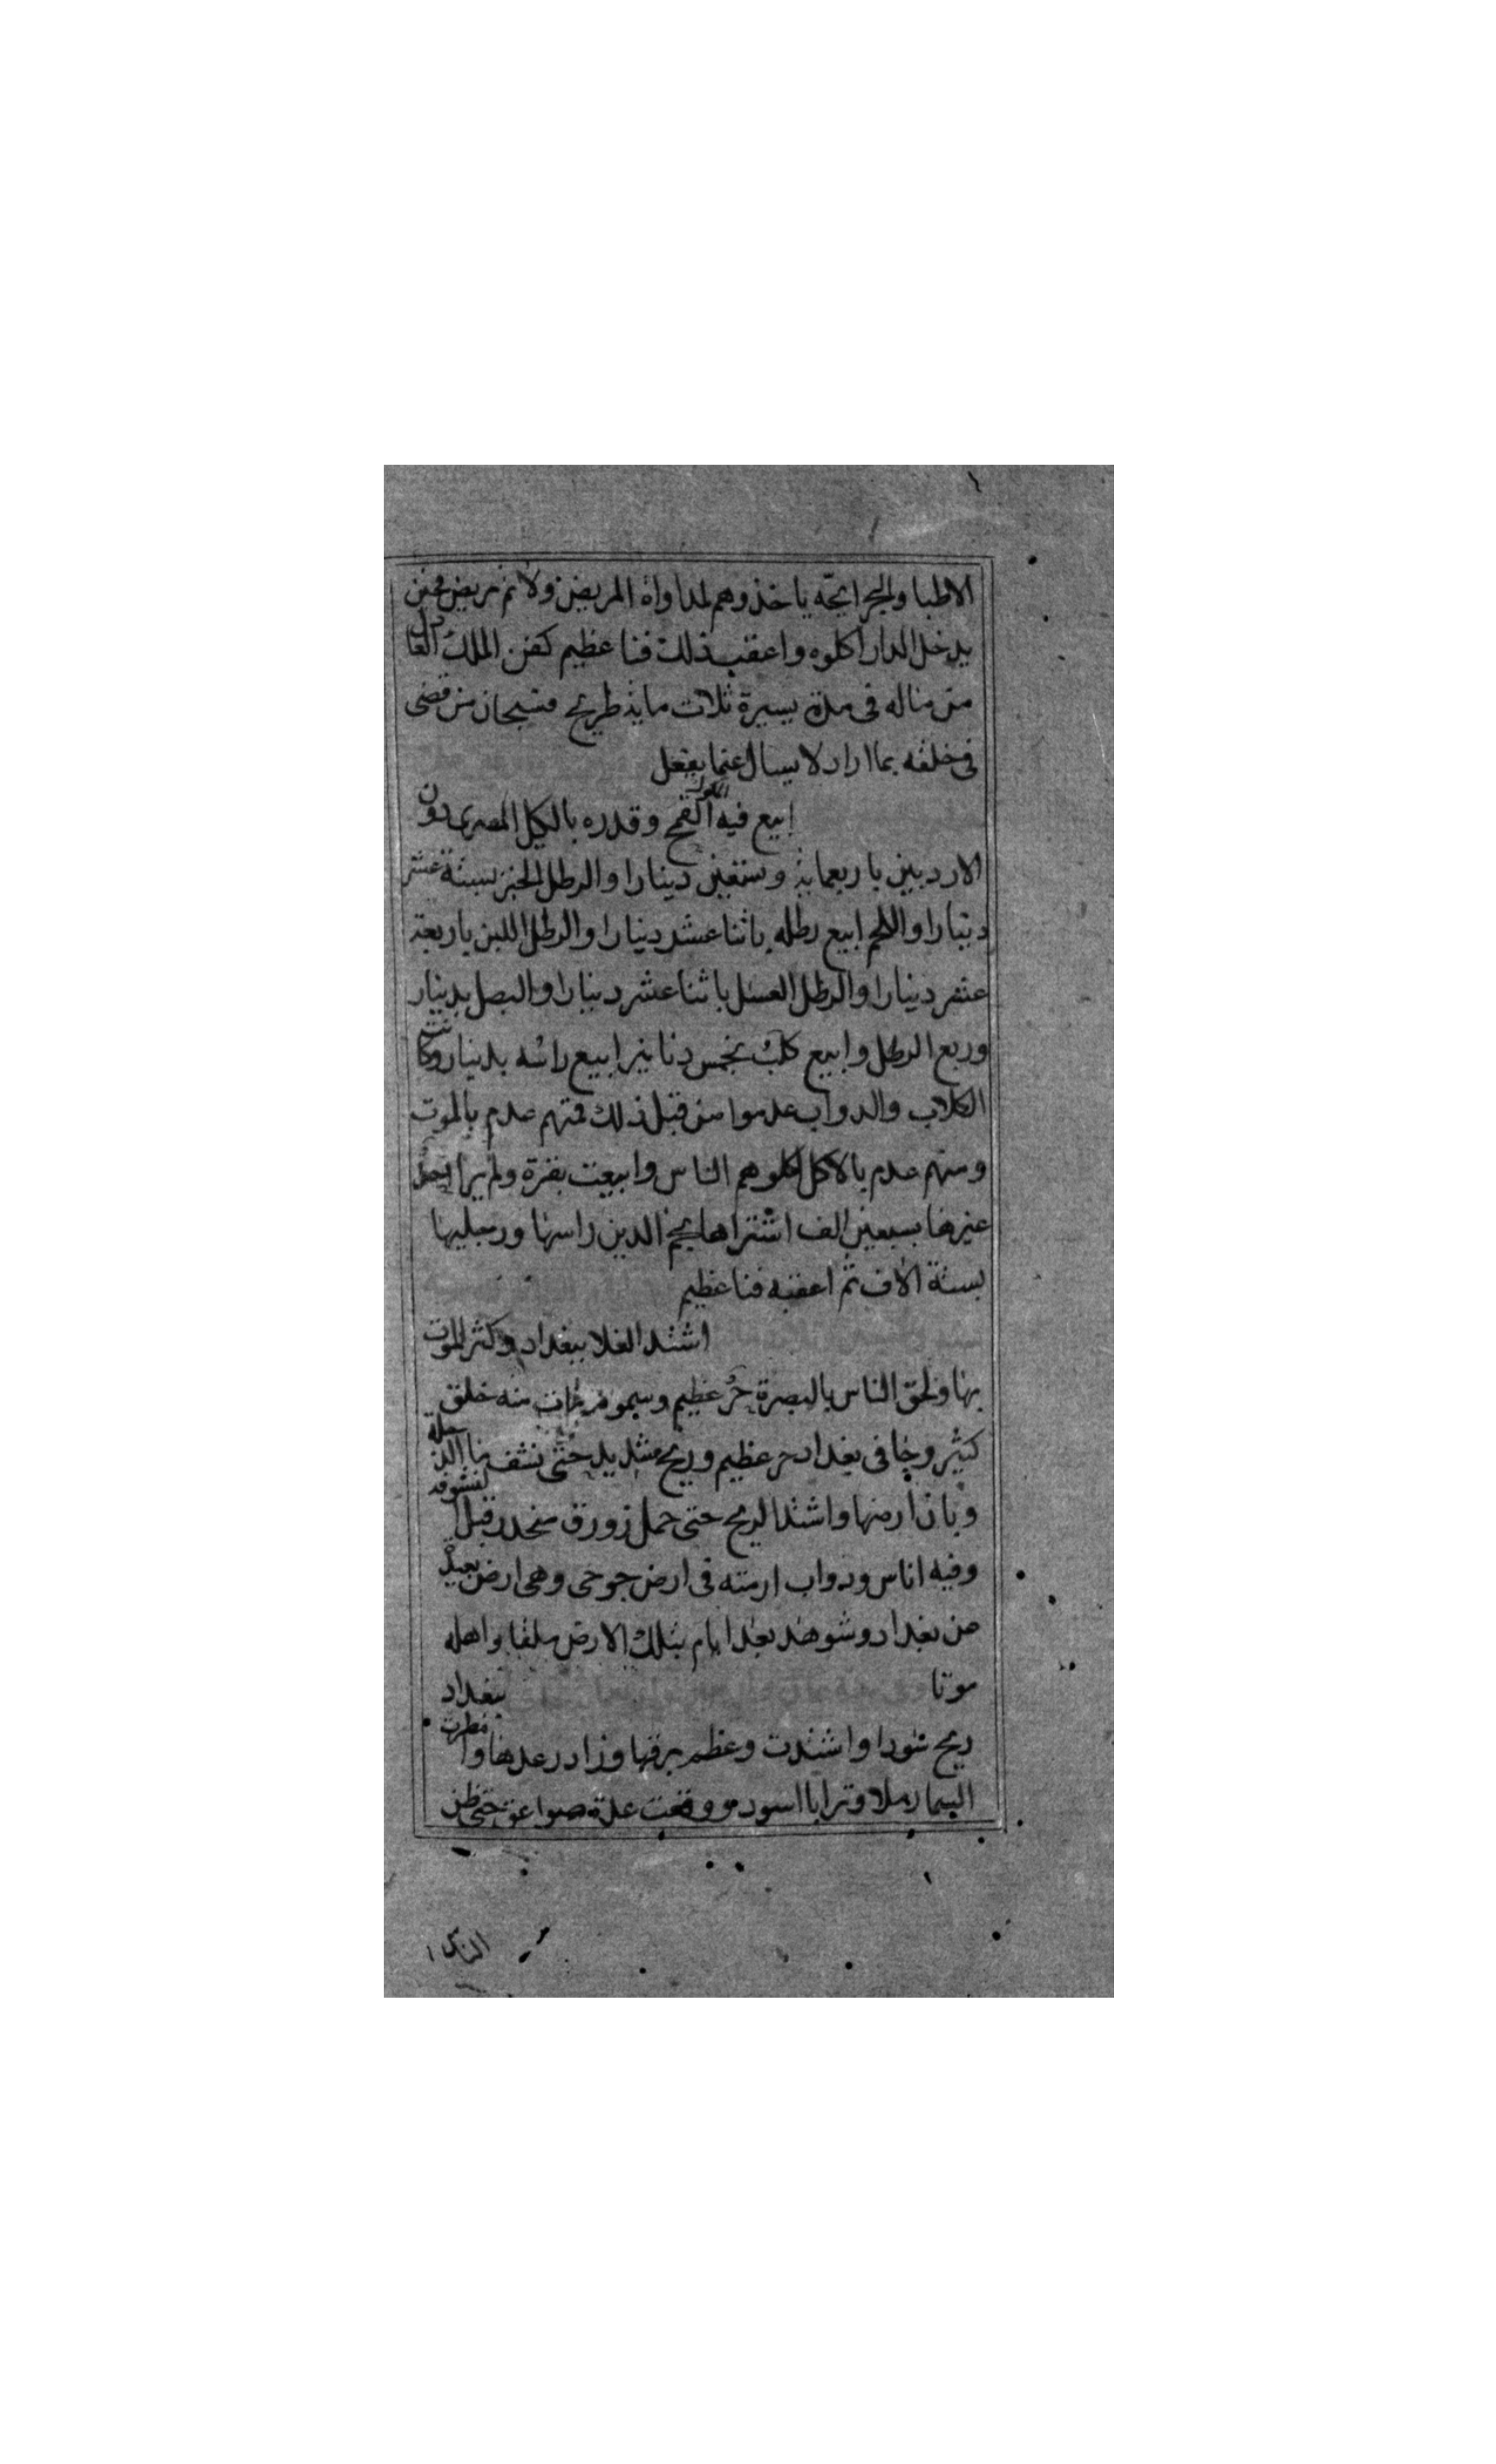 الاطبا والجرايحه ياخذوهم لمداواة المريض ولا ثم مريض فحين
يدخل الدار اكلوه واعقب ذلك فنا عظيم كفن الملك العادل
من ماله في مدة يسيرة ثلاث ماية طريح فسبحان من قضى
في خلقه بما اراد لا يسال عما يفعل
ابيع فيه القمح وقدره بالكيل المصرى دون
الاردبين باربعماية وستين دينارا والرطل الخبز بستة عشر
دينارا واللحم ابيع رطله باثنا عشر دينارا والرطل اللبن باربعة
عشر دينارا والرطل العسل باثنا عشر دينارا والبصل بدينار
وربع الرطل وابيع كلب بخمس دنانير ابيع راسه بدينار وكانت
الكلاب والدواب عدموا من قبل ذلك فمنهم عدم بالموت
ومنهم عدم بالاكل اكلوهم الناس وابيعت بقرة ولم يرا
غيرها بسبعين الف اشتراها نجم الدين راسها ورجليها
بستة الاف ثم اعقبه فنا عظيم
اشتد الغلا ببغداد وكثر الموت
بها ولحق الناس بالبصرة حر عظيم وسموم مات منه خلق
كثير وجا في بغداد حر عظيم وريح شديد حتى نشف ما الدجلة
وبان ارضها واشتد الريح حتى حمل زورق منحدر قبل
وفيه اناس ودواب ارمته في ارض جوخى وهي ارض بعيد
من بغداد وشوهد بعد ايام بتلك الارض ملقا واهله
موتا ببغداد
ريح سودا واشتدت وعظم برقها وزاد رعدها وامطرت
السما رملا وترابا اسود ووقعت عدة صواعق حتى ظن
الناس